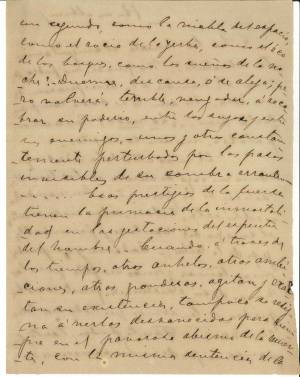 un segundo, como la niebla del espacio,
como el rocío de la yerba, como el eco
de los bosques, como los sueños de la no
che! Duerme, descansa, ó se aleja; pe
ro volverá, terrible, vengador, á reco
brar su poderío, entre los suyos y entre
sus enemigos,- unos y otros constan
temente perturbados por los pasos
invisibles de su sombra errante....
...... Esos prestigios de la fuerza
tienen la primacía de la inmortali
dad en las gestaciones del espíritu
del hombre... Cuando, á través de
los tiempos, otros anhelos, otras ambi
ciones, otras agitan y
tan su existencia, tampoco se resig
na á verlos desvanecidos para siem
pre en el pavoroso abismo de la muer
te, con la misma sentencia de la